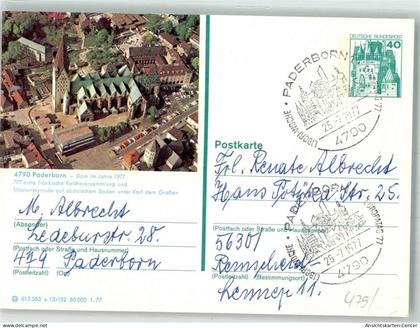 DEUTSCHE BUNDESPOST
40
PADERBORN
25-7-1977
4790
Postkarte
4790 Paderborn – Dom im Jahre 1977
777 erste fränkische Reichsversammlung und
Missionssynode auf sächsischem Boden unter Karl dem Großen
M. Albrecht
(Absender)
Ledeburstr. 28.
(Postfach oder Straße und Hausnummer)
479 Paderborn
(Postleitzahl) (Ort)
Frl. Renate Albrecht
Hans Str. 25.
(Postfach oder Straße und Hausnummer)
PADERBORN
LIBORIWOCHE
25-7-1977
4790
56301
Remscheid-
(Postleitzahl) (Bestimmungsort)
Lennep 11.
479/
613 563 e 13/152 60 000 1.77
www.Ansichtskarten-Center.de